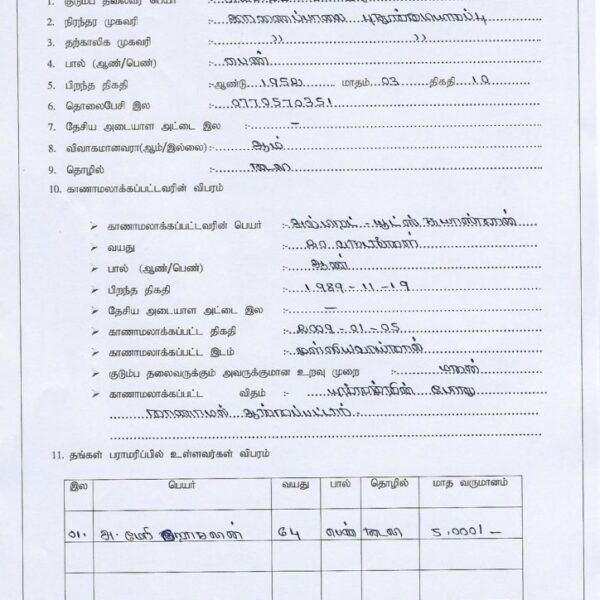 1. குடும்ப தலைவர் பெயர்
2. நிரந்தர முகவரி :-
3. தற்காலிக முகவரி :- ,, ,,
4. பால் (ஆண்/பெண்) :- பெண்
5. பிறந்த திகதி :-ஆண்டு 1952 மாதம் 03 திகதி 10
6. தொலைபேசி இல :- 0770570351
7. தேசிய அடையாள அட்டை இல :- –
8. விவாகமானவரா(ஆம்/இல்லை):- ஆம்
9. தொழில் :-
10. காணாமலாக்கப்பட்டவரின் விபரம்
➢ காணாமலாக்கப்பட்டவரின் பெயர் :-
➢ வயது :-
➢ பால் (ஆண்/பெண்) :- ஆண்
➢ பிறந்த திகதி :- 1989 - 11 - 19
➢ தேசிய அடையாள அட்டை இல :- –
➢ காணாமலாக்கப்பட்ட திகதி :- 2009 - 01 - 05
➢ காணாமலாக்கப்பட்ட இடம் :- முள்ளியவாய்க்கால்
➢ குடும்ப தலைவருக்கும் அவருக்குமான உறவு முறை :- மகன்
➢ காணாமலாக்கப்பட்ட விதம் :- யுத்தத்தின் போது
காணாமல் ஆக்கப்பட்டார்
11. தங்கள் பராமரிப்பில் உள்ளவர்கள் விபரம்
இல பெயர் வயது பால் தொழில் மாத வருமானம்
01. அ. மேரி 64 பெண் 5,000/-